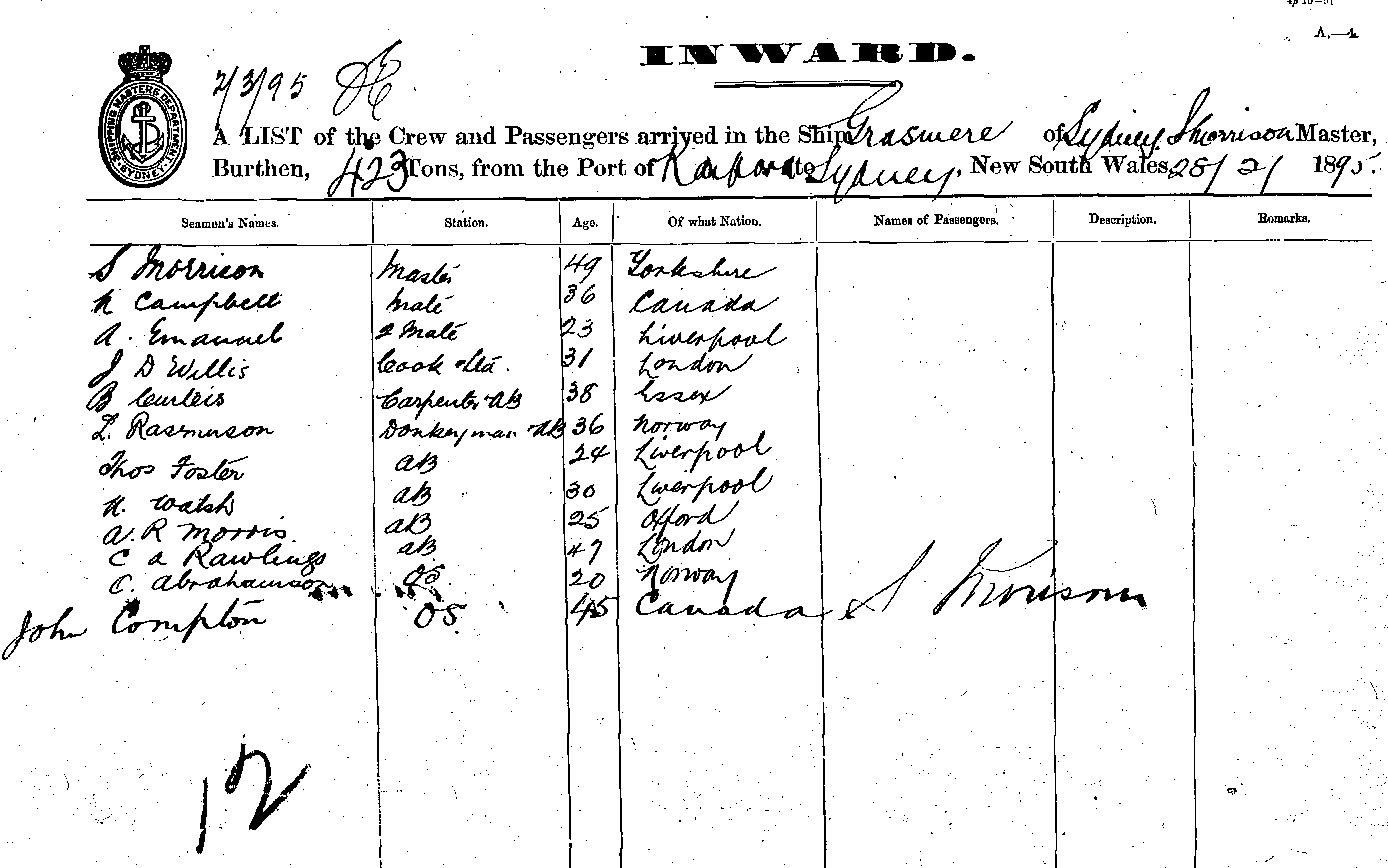 A,—4
INWARD.
SHIPPING MASTERS DEPARTMENT SYDNEY
2/3/95
A LIST of the Crew and Passengers arrived in the Ship Grasmere of Sydney, S Morrison Master,
Burthen, 423 Tons, from the Port of Kaipara to Sydney, New South Wales, 28/2/1895.
Seamen's Names. Station. Age. Of what Nation. Names of Passengers. Description. Remarks.
S Morrison Master 49 Yorkshire
N Campbell Mate 36 Canada
A. Emanuel 2 Mate 23 Liverpool
J D Willis Cook & Std. 31 London
B Curleis Carpenter AB 38 Essex
L. Rasmuson Donkeyman AB 36 Norway
Thos Foster AB 24 Liverpool
N. Walsh AB 30 Liverpool
A. R Morris. AB 25 Offord
C A Rawlings AB 47 London
C. Abrahamson OS 20 Norway
John Compton OS. 45 Canada S Morrison
12